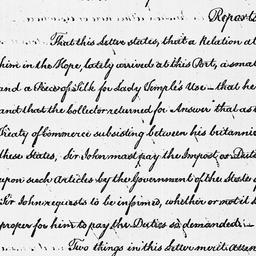 Reports
That this Letter states, that a Relation of
him in the Hope, lately arrived at this Port, a small
and a Piece of Silk for Lady Temple's Use — that he
and that the Collector returned for Answer that as
Treaty of Commerce subsisting between his britannic
these States, Sir John must pay the Impost or Duties
upon such Articles by the Government of the State of
Sir John requests to be informed, whether or not it
proper for him to pay the Duties so demanded.—
Two things in this letter merit